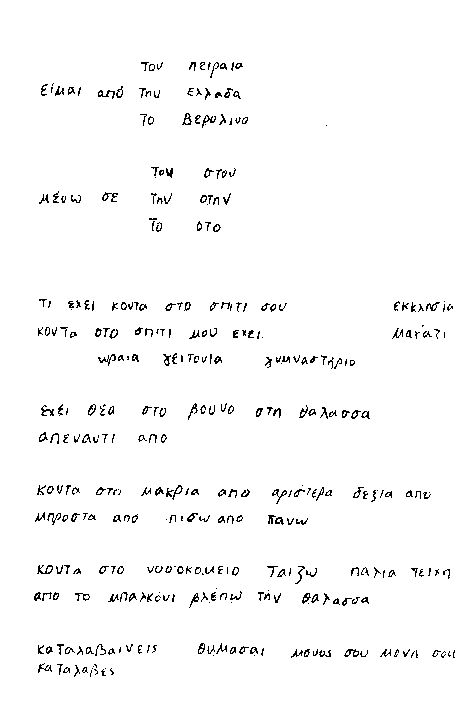 τον πειραια
είμαι από την ελλαδα
το βερολινο
τον στον
μένω σε την στην
το στο
τι εχει κοντα στο σπιτι σου εκκλησια
κοντα στο σπιτι μου εχει μαγαζι
ωραια γειτονια γυμναστήριο
εχει θέα στο βουνο στη θαλασσα
απεναντι απο
κοντα στο μακρια απο αριστερα δεξια απο
μπροστα από πισω απο πανω
κοντα στο νοσοκομειο ταιζω παλια τειχη
απο το μπαλκονι βλέπω την θαλασσα
καταλαβαινεις θυμασαι μονος σου μονη σου
καταλαβες